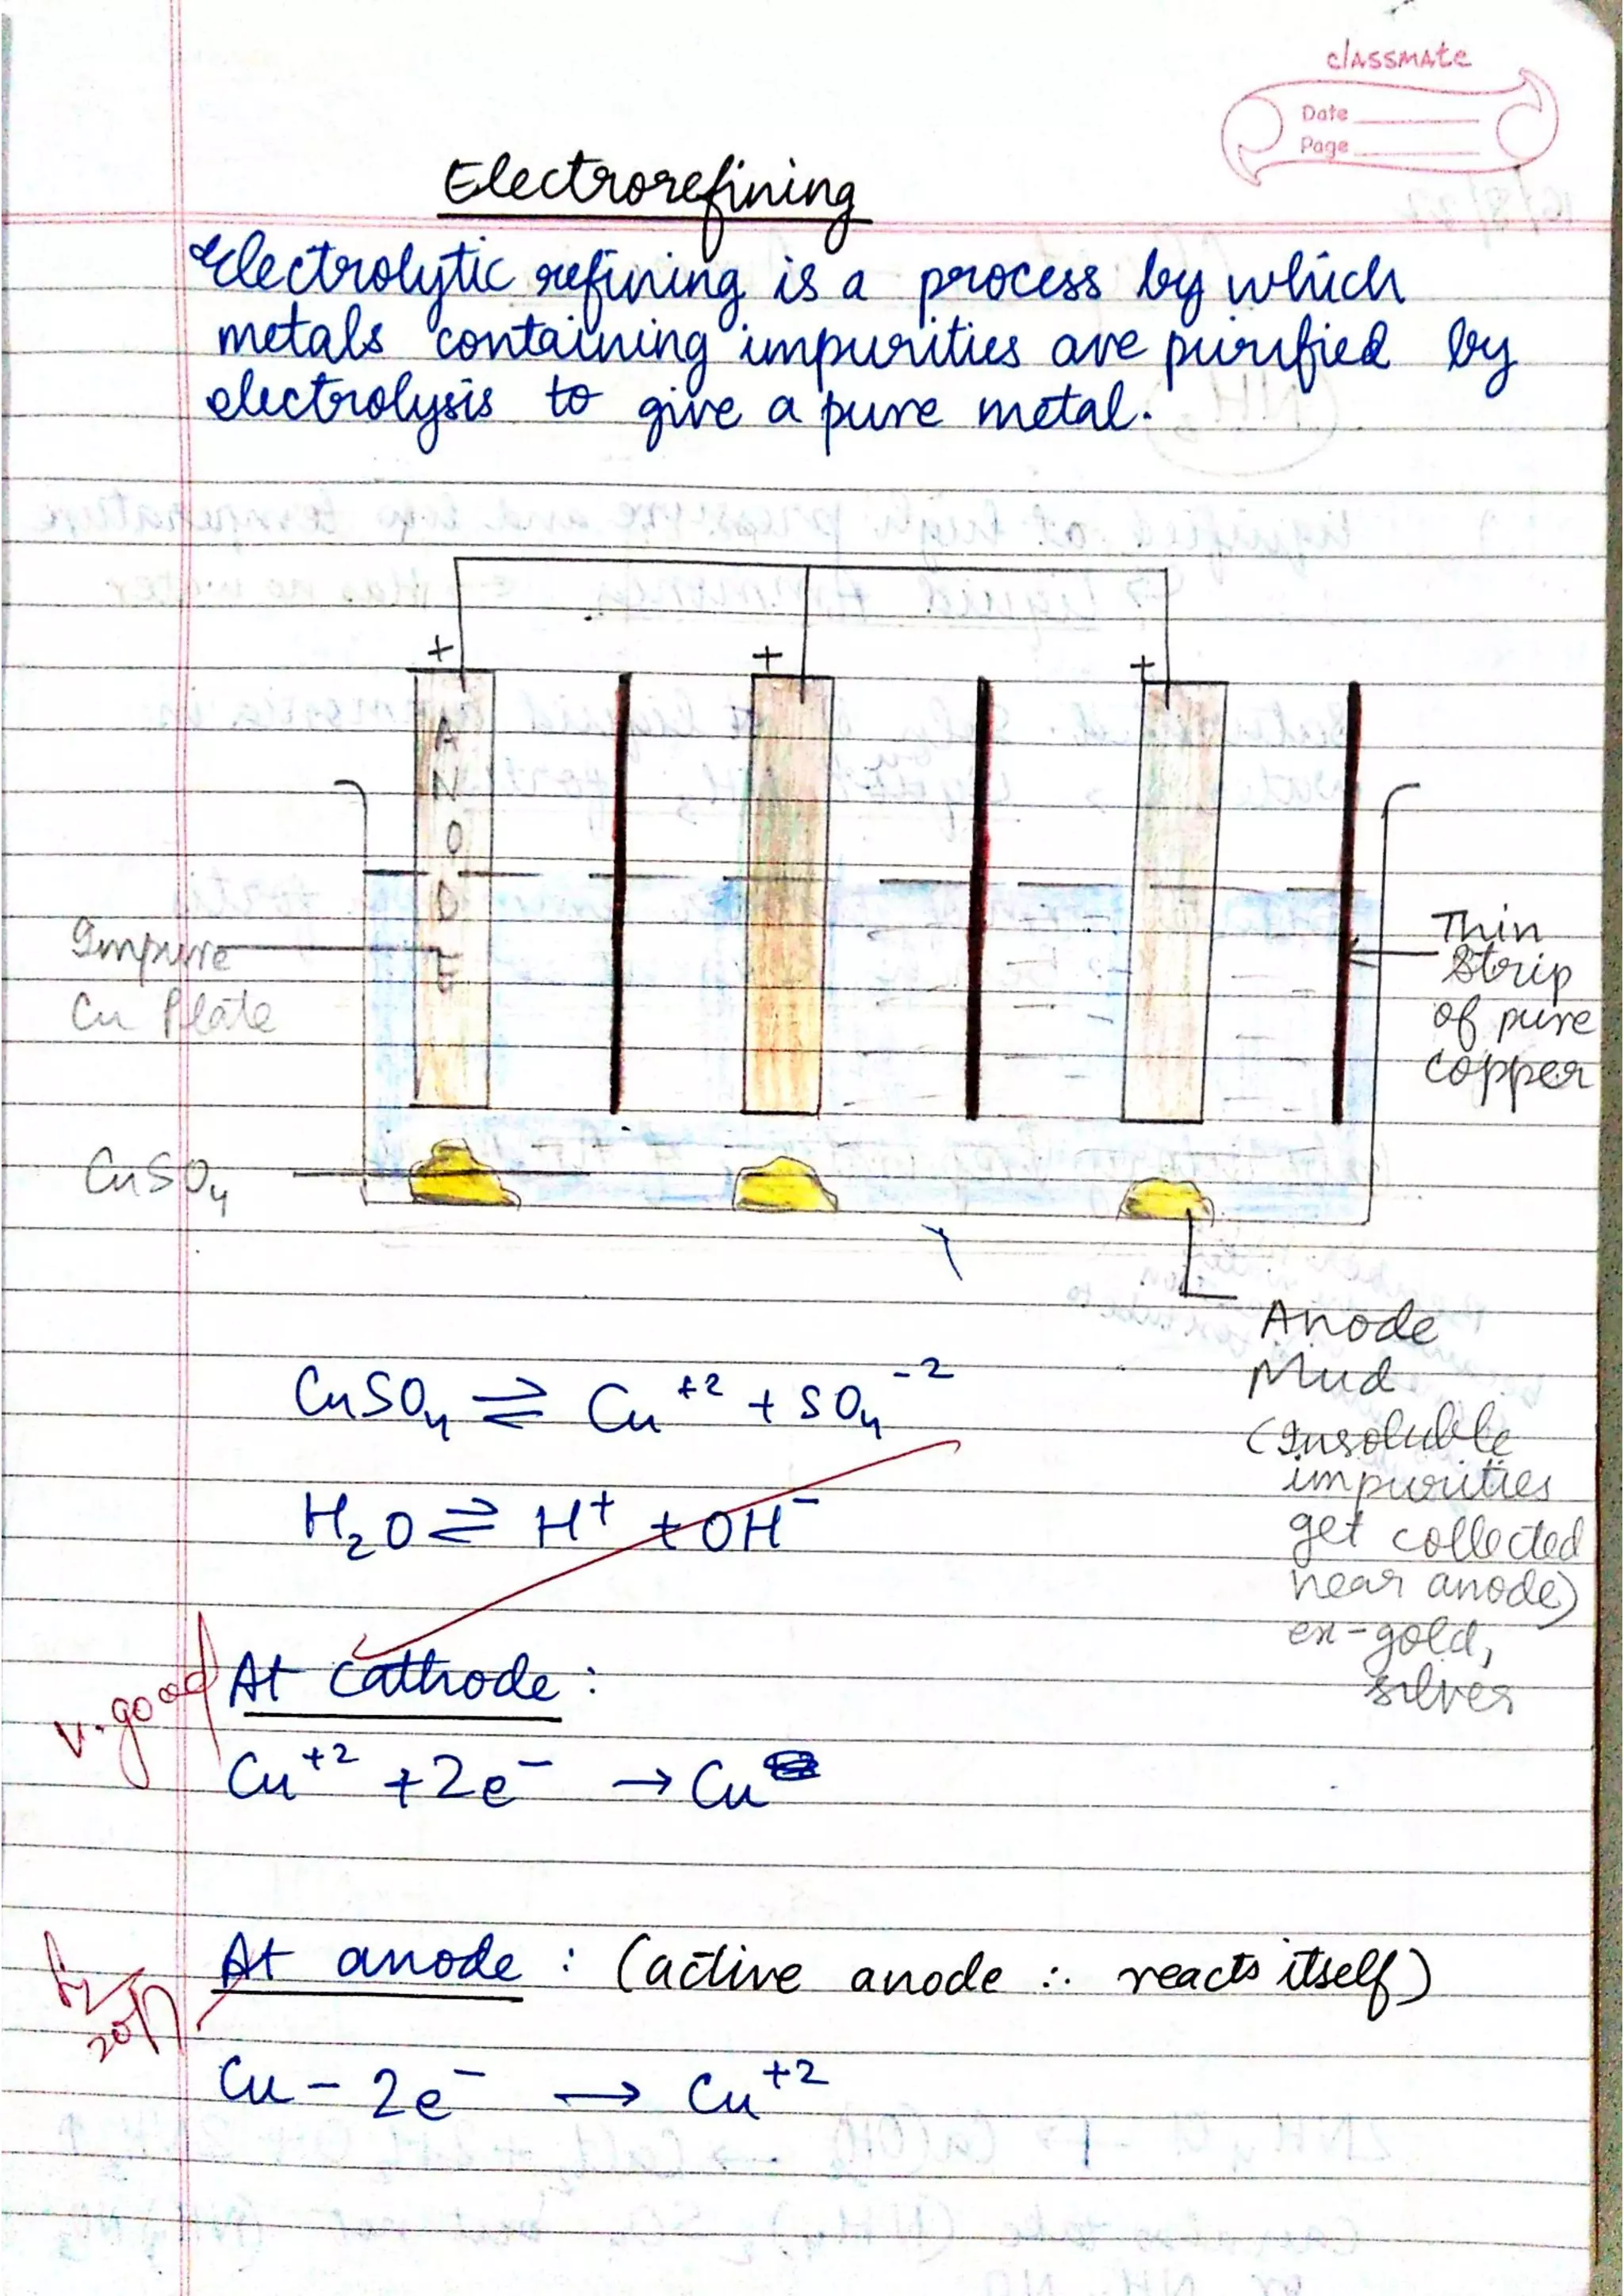 classmate
Date
Page
Electrorefining
Electrolytic refining is a process by which
metals containing impurities are purified by
electrolysis to give a pure metal.
+ + +
A
N
O
D
E
Impure
Cu Plate
Thin
Strip
of pure
copper
CuSO₄
Anode
Mud
(Insoluble
impurities
get collected
near anode)
ex-gold,
silver
CuSO₄ ⇌ Cu⁺² + SO₄⁻²
H₂O ⇌ H⁺ + OH⁻
v.good
At Cathode :
Cu⁺² + 2e⁻ → Cu
At anode : (active anode ∴ reacts itself)
Cu - 2e⁻ → Cu⁺²